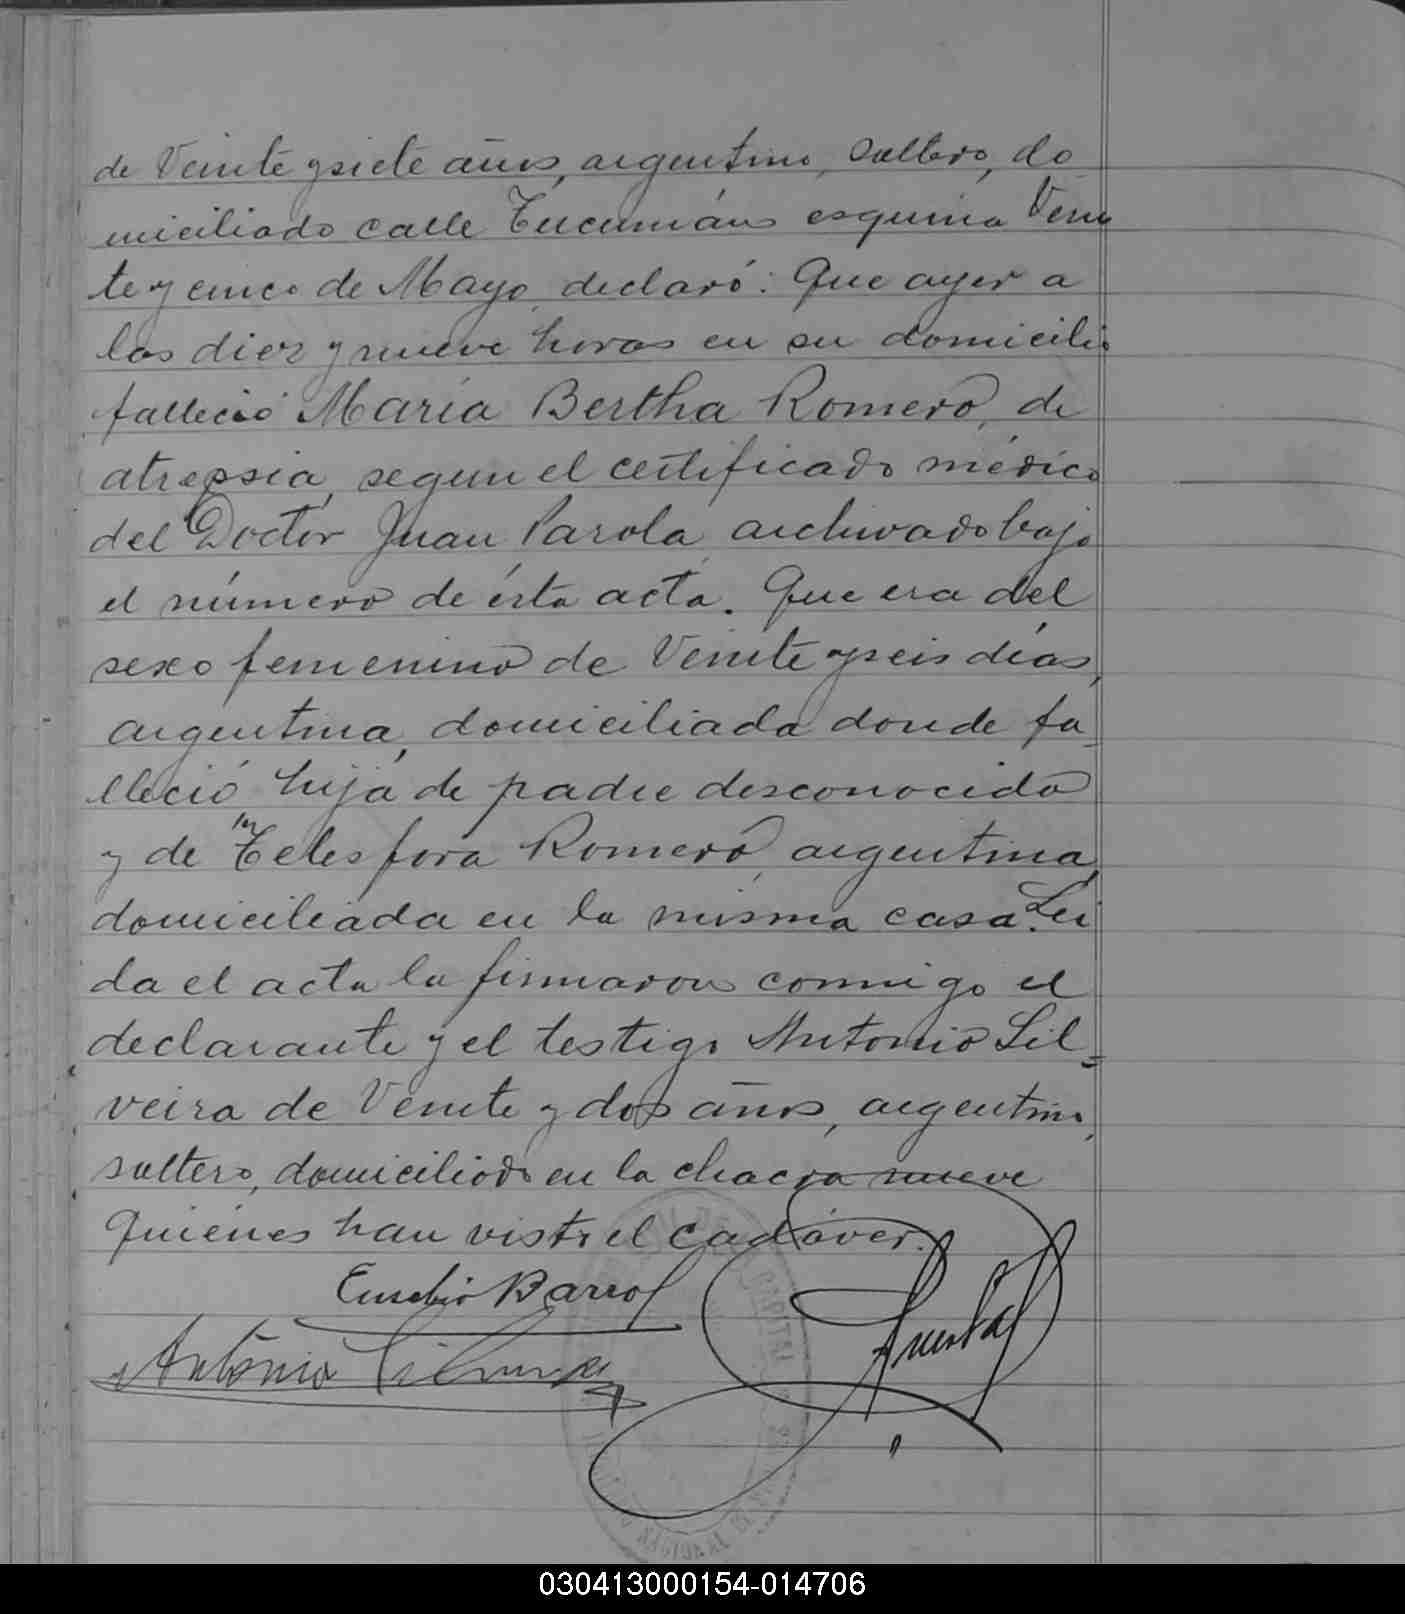 de Veinte y siete años, argentino, soltero, do
miciliado calle Tucumán esquina Vein
te y cinco de Mayo, declaró: Que ayer a
las diez y nueve horas en su domicilio
falleció María Bertha Romero, de
atrepsia, segun el certificado médico
del Doctor Juan Parola archivado bajo
el número de ésta acta. Que era del
sexo femenino de Veinte y seis días,
argentina, domiciliada donde fa_
lleció, hija de padre desconocido
y de Telesfora Romero, argentina,
domiciliada en la misma casa. Lei
da el acta la firmaron conmigo el
declarante y el testigo Antonio Sil=
veira de Veinte y dos años, argentino,
soltero, domiciliado en la chacra nueve
Quiénes han visto el cadáver.
Eusebio Barros
Antonio Silveira
NACIONAL
030413000154-014706